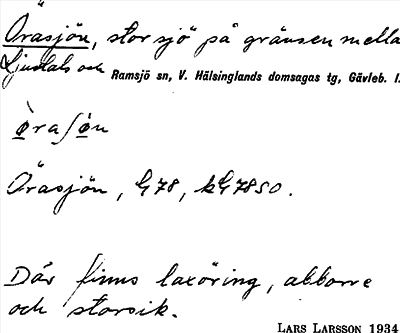 Örasjön, stor sjö på gränsen mella
Ljusdals och Ramsjö sn, V. Hälsinglands domsagas tg, Gävleb. l.
Örasjön, G78, kG7850.
Där finns laxöring, abborre
och storsik.
LARS LARSSON 1934